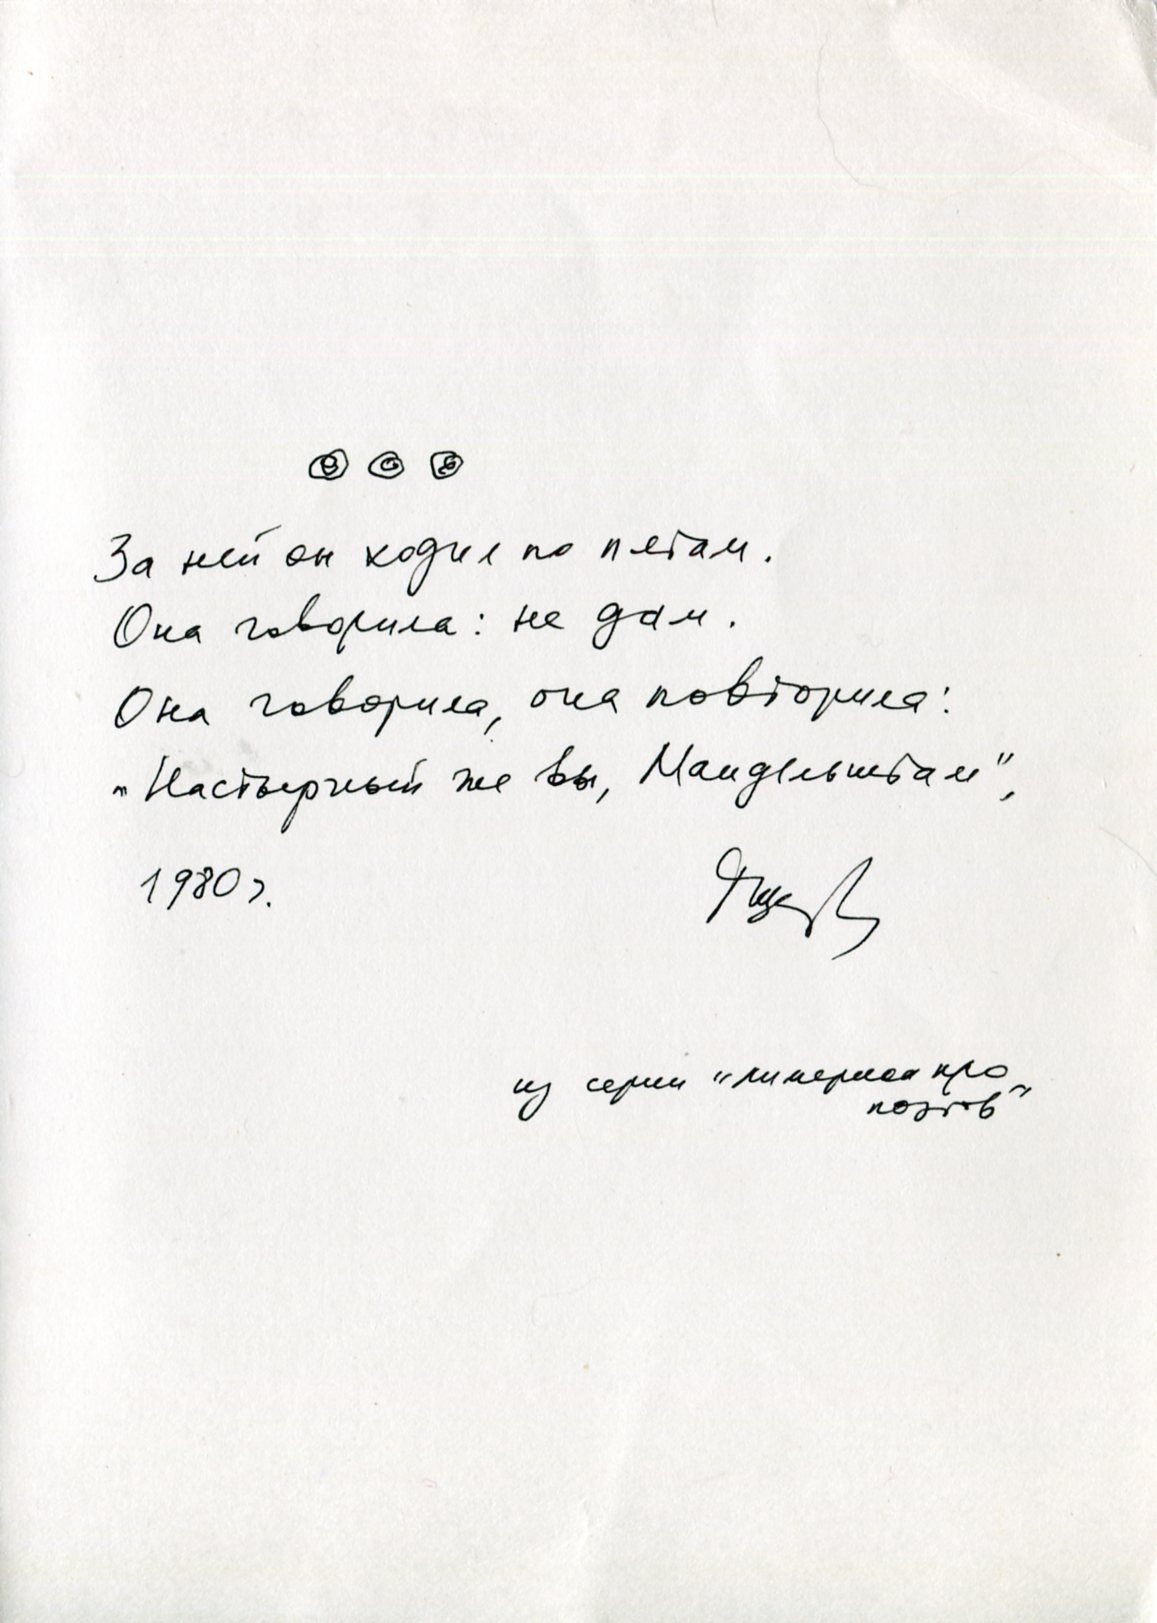 За ней он ходил по пятам.
Она говорила: не дам.
Она говорила, она повторила:
„Настырный же вы, Мандельштам”,
1980 г.
из серии „лимерики про
поэтов”